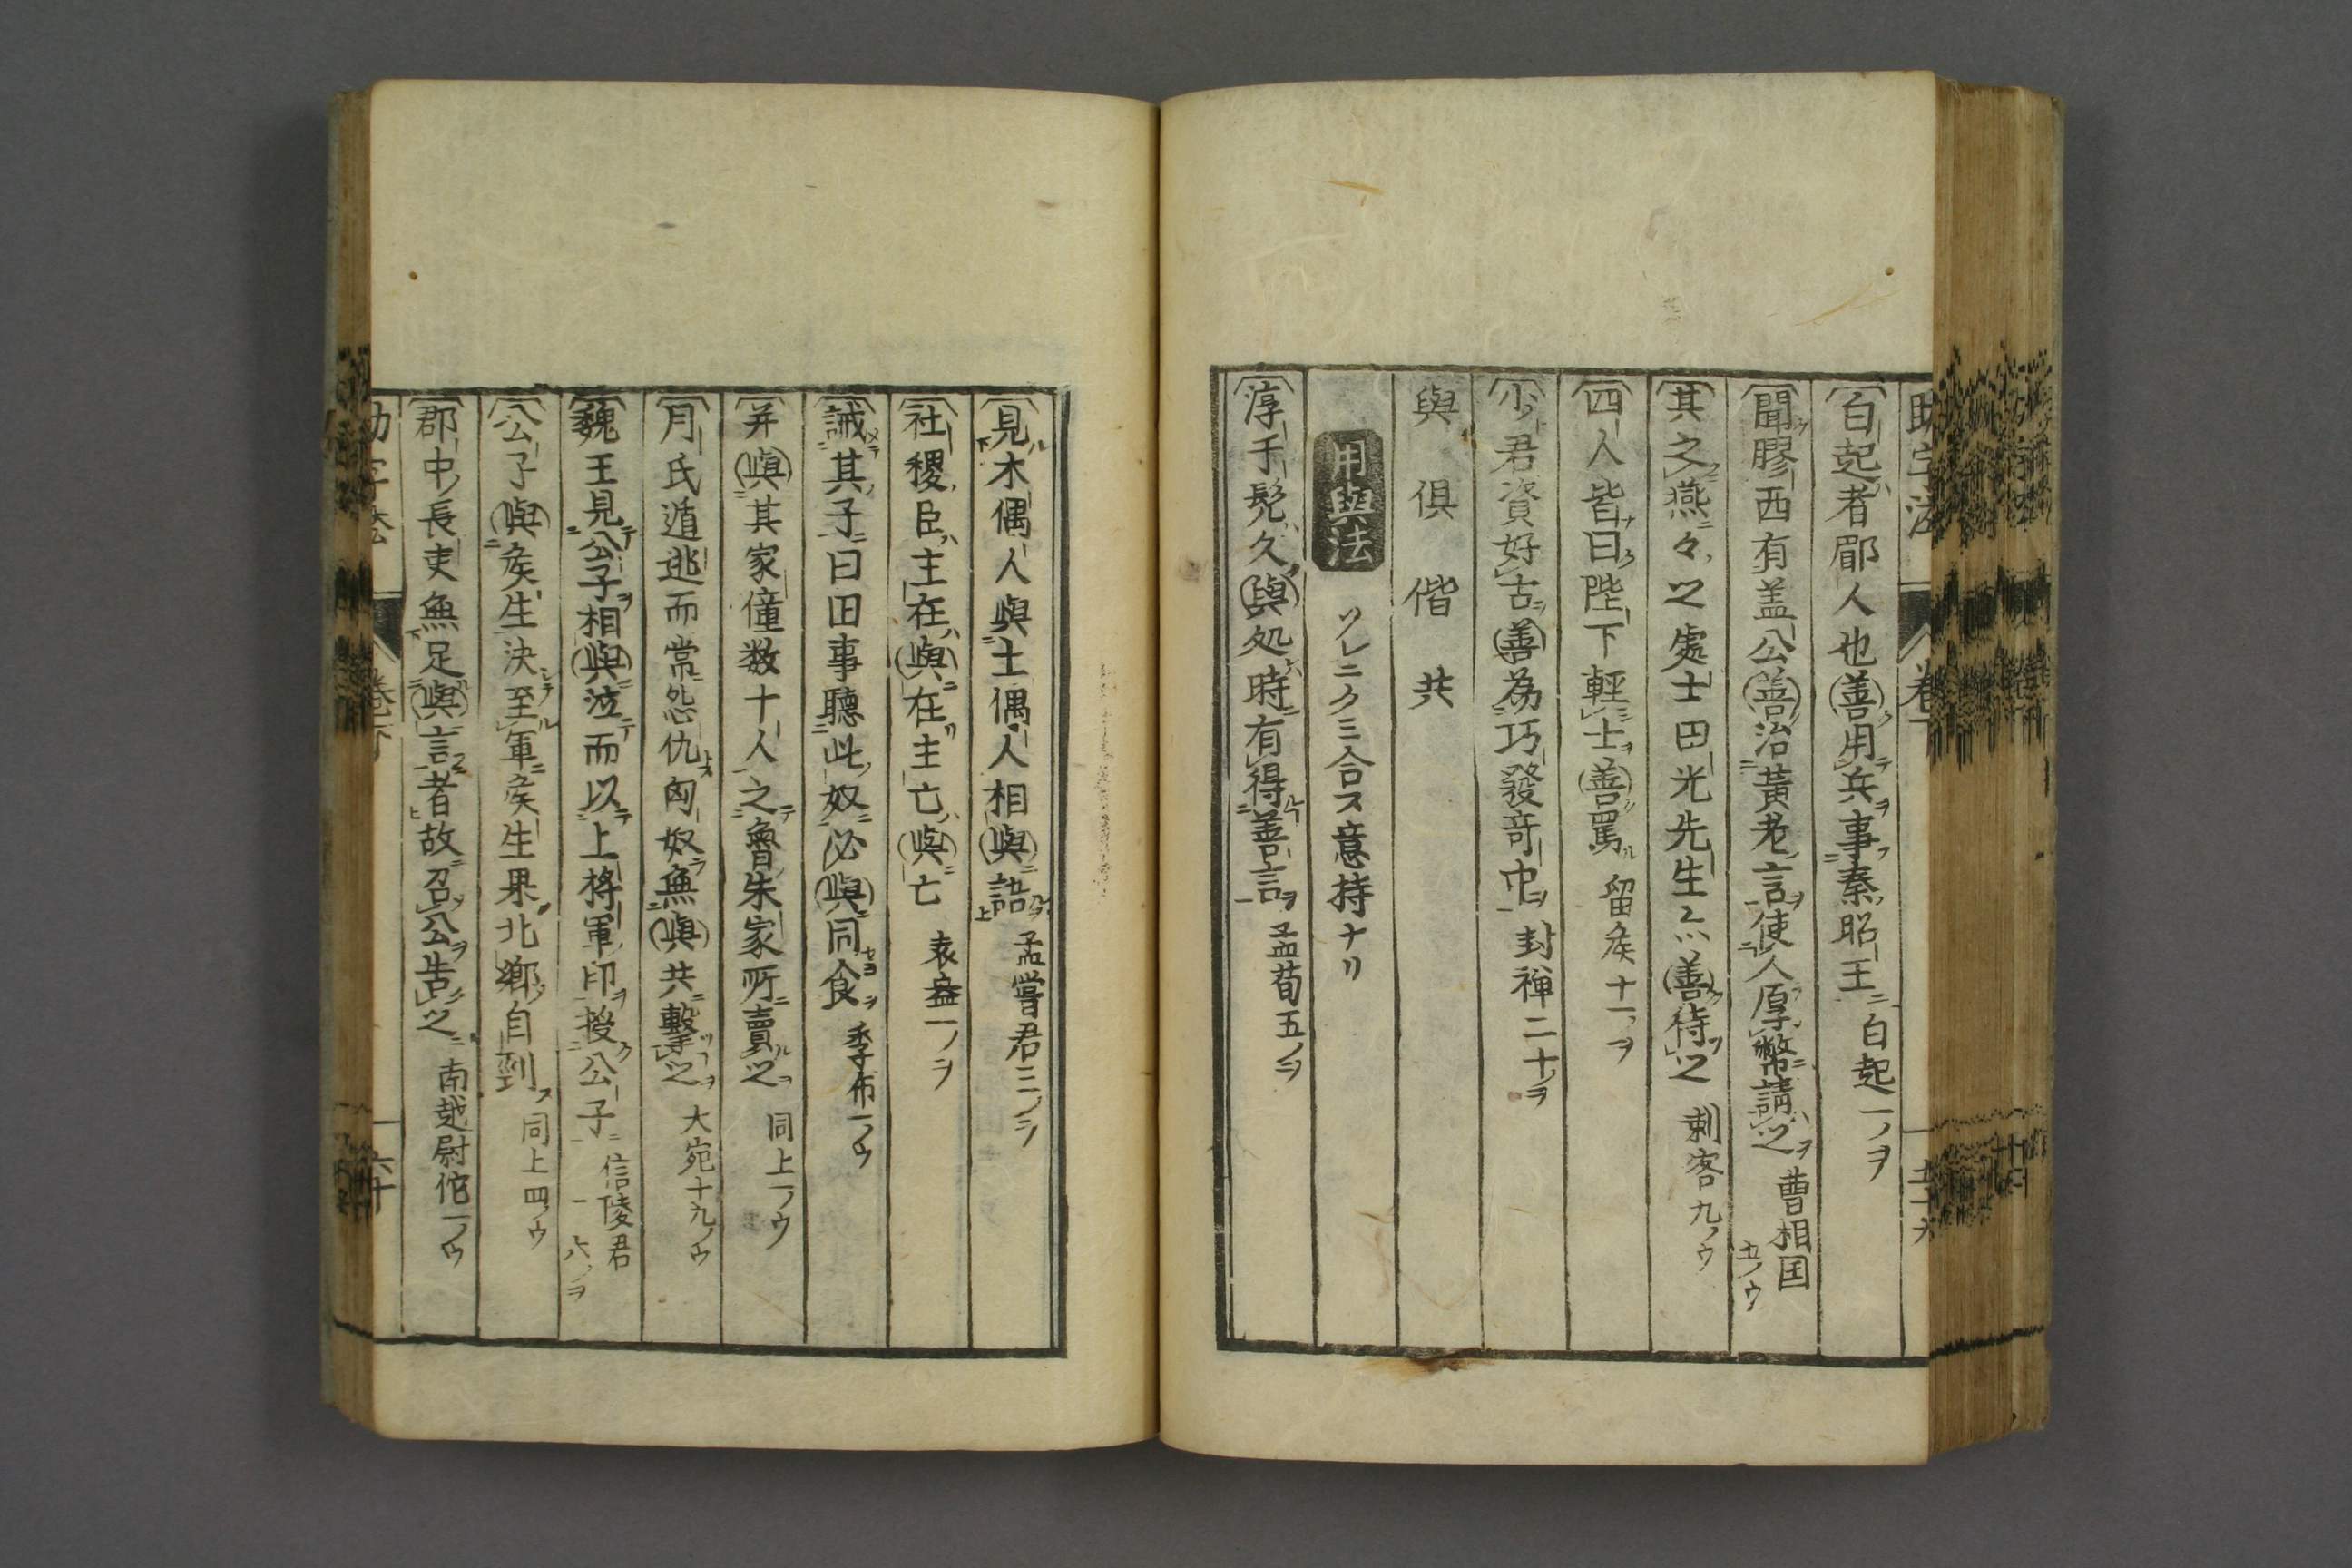 白起者郿人也善用兵事秦昭王 白起一ノヲ
聞膠西有盖公善治黃老言使人厚幣請之 曹相国五ノウ
其之燕々之處士田光先生亦善待之 刺客九ノウ
四人皆曰陛下輕士善罵 留矦十一ノヲ
少君資好古善為巧發奇中 封禅二十ノヲ
與 俱 偕 共
用與法 ツレニクミ合ス意持ナリ
淳于髡久與処時有得善言 孟荀五ノヲ
見木偶人與土偶人相與語 孟嘗君三ノヲ
社稷臣主在與在主亡與亡 袁盎一ノヲ
誡其子曰田事聽此奴必與同食 季布一ノウ
并與其家僮数十人之魯朱家所賣之 同上一ノウ
月氏遁逃而常怨仇匈奴無與共擊之 大宛十九ノウ
魏王見公子相與泣而以上將軍印授公子 信陵君一六ノヲ
公子與矦生決至軍矦生果北鄉自剄 同上四ノウ
郡中長吏無足與言者故召公告之 南越尉佗一ノウ